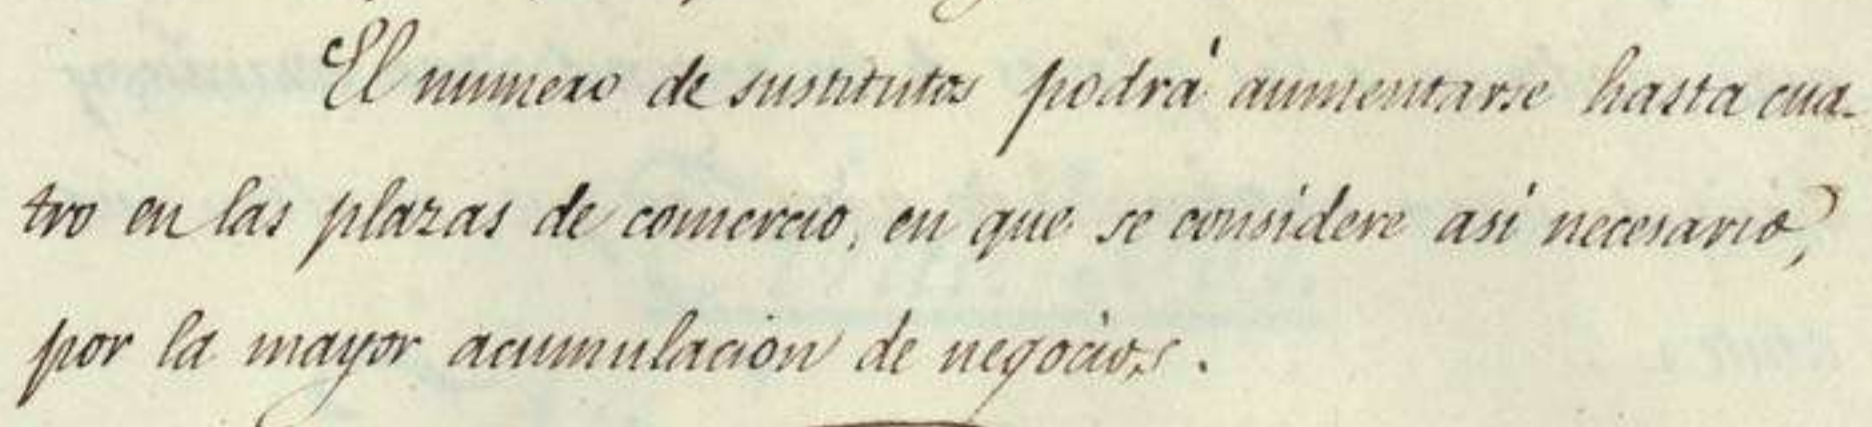 El numero de sustitutos podrá aumentarse hasta cua-
tro en las plazas de comercio, en que se considere asi necesario,
por la mayor acumulacion de negocios.